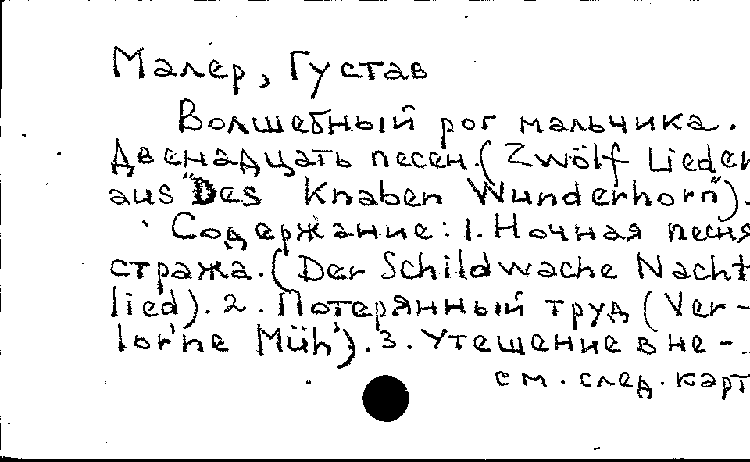 Малер, Густав
Волшебный рог мальчика.
Двенадцать песен. (Zwölf Lieder
aus "Des Knaben Wunderhorn").
Содержание: 1. Ночная песня
стража. (Der Schildwache Nacht
lied). 2. Потерянный труд (Ver-
lor'ne Müh'). 3. Утешение в не-
см. след. карт